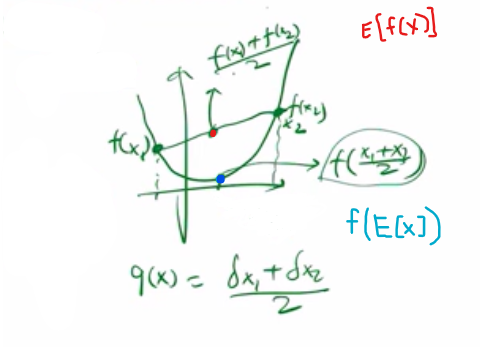 E[f(x)]
f(x₁)+f(x₂)
2
f(x₂)
x₂
f(x₁)
f(x₁+x₂/2)
f(E[x])
q(x) = δx₁+δx₂
2